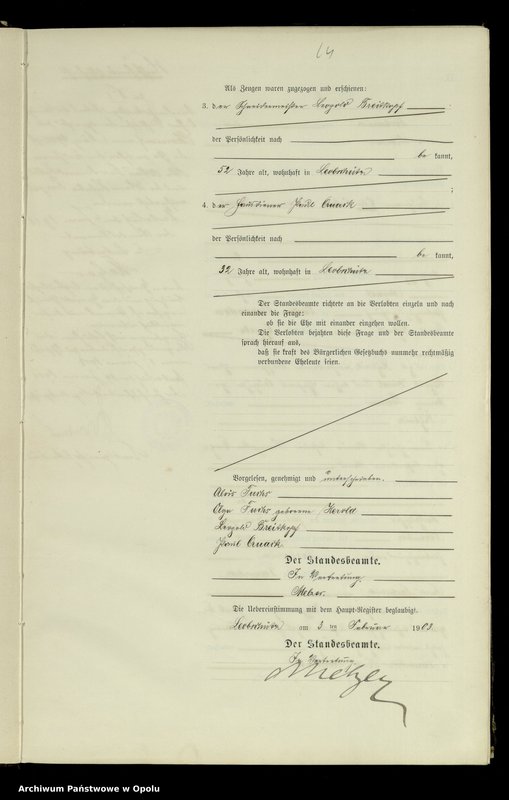 64
Als Zeugen waren zugezogen und erschienen:
3. der Schneidermeister Leopold Breitkopf
der Persönlichkeit nach
be kannt,
52 Jahre alt, wohnhaft in Leobschütz
;
4. der Haus diener Paul
der Persönlichkeit nach
be kannt,
32 Jahre alt, wohnhaft in Leobschütz
Der Standesbeamte richtete an die Verlobten einzeln und nach
einander die Frage:
ob sie die Ehe mit einander eingehen wollen.
Die Verlobten bejahten diese Frage und der Standesbeamte
sprach hierauf aus,
daß sie kraft des Bürgerlichen Gesetzbuchs nunmehr rechtmäßig
verbundene Eheleute seien.
Vorgelesen, genehmigt und unterschrieben.
Alois Fuchs
Olga Fuchs geborene Herold
Leopold Breitkopf
Paul
Der Standesbeamte.
In Vertretung.
Die Uebereinstimmung mit dem Haupt-Register beglaubigt.
Leobschütz am 3. ten Februar 1903.
Der Standesbeamte.
In Vertretung
Archiwum Państwowe w Opolu